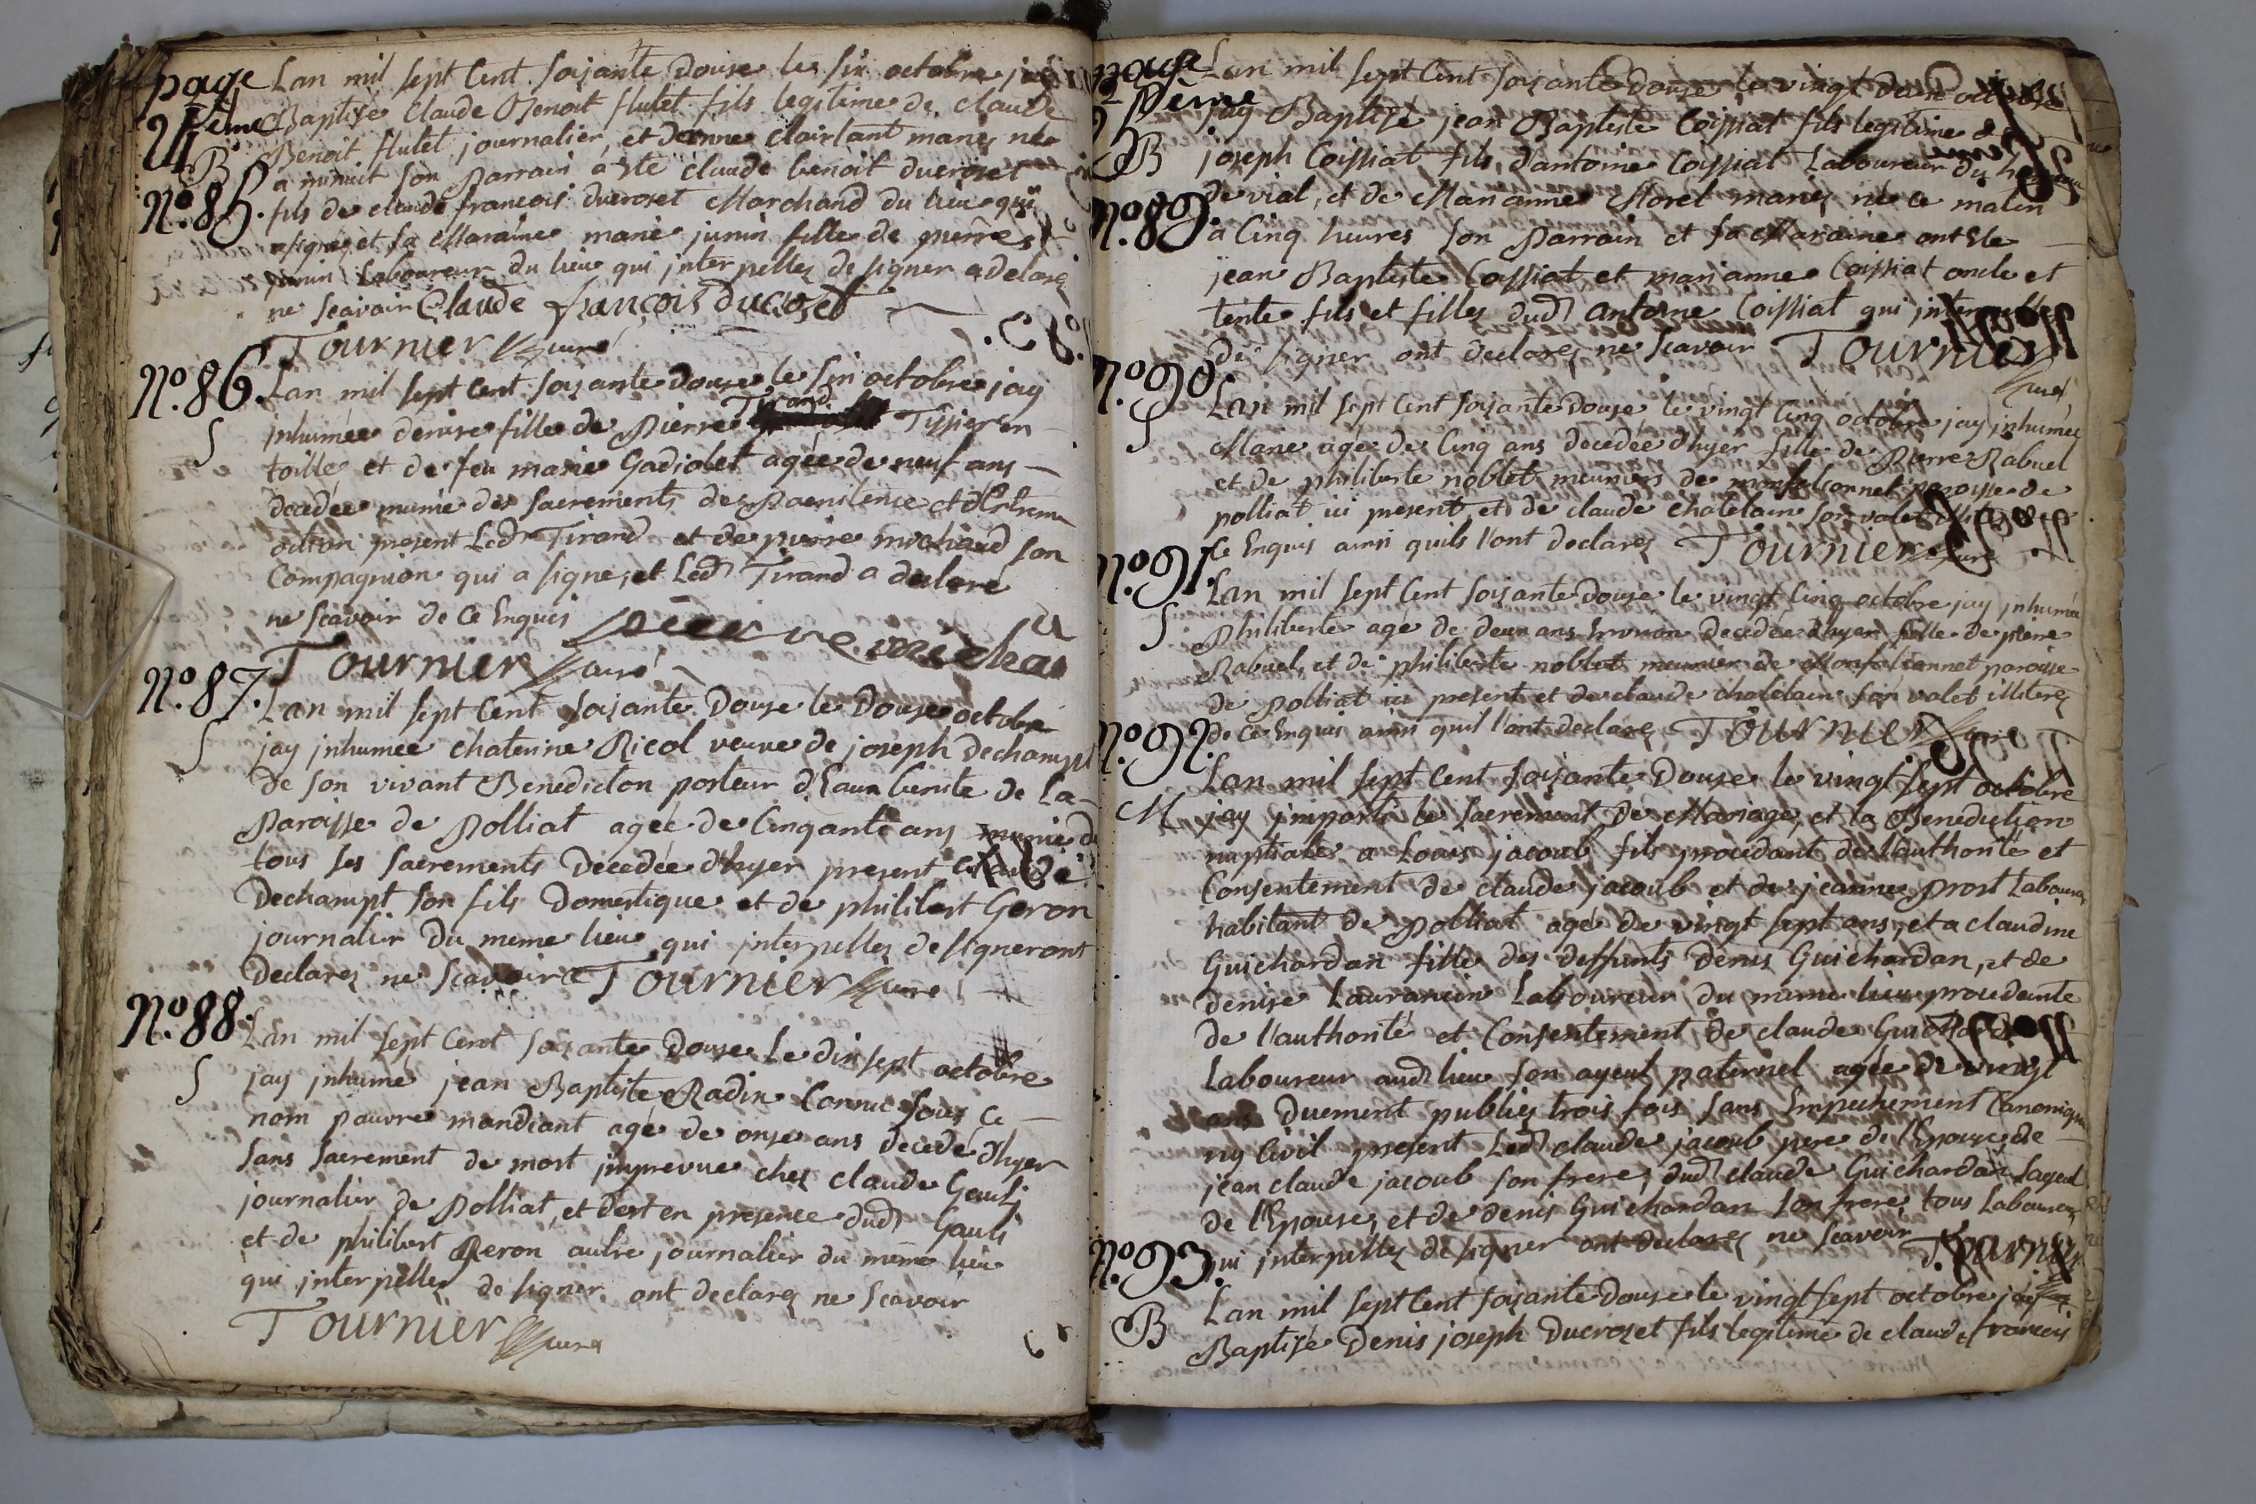 page
24eme
B
No. 85.
Lan mil sept Cent soixante Douze le six octobre jay
Baptise Claude Benoit flutet fils legitime de claude
Benoit flutet journalier, et danne clairtant maries né
a minuit son Parrain a ete claude benoit ducroset
fils de claude francois ducroset Marchand du lieu qui
signé, et sa Maraine marie junin fille de pierre
junin Laboureur du lieu qui interpellez de signer a declaré
ne scavoir Claude françois ducroset
Tournier curé
No. 86.
S
Lan mil sept cent soixante douze le six octobre jay
inhumée denise fille de Pierre Tirand Tissier en
toille et de feu marie Gadiolet agée de neuf ans
décedée munie des sacrements de Paenitence et d'Extreme
oction present Led Tirand et de pierre michaud son
Compagnion qui a signe, et Led Tirand a declaré
ne scavoir de Ce Enquis pierre micha u
Tournier curé
No. 87.
S
Lan mil sept Cent soixante Douze le Douze octobre
jay inhumee chaterine Ricol veuve de joseph Dechampt
de son vivant Benedicton porteur d'Eaux benite de La
Paroisse de Polliat agée de Cinquante ans munie de
tous ses sacrements Decedée d'hyer present Claude
Dechampt son fils Domestique et de philibert Geron
journalier Du meme lieu qui interpellez de signer ont
Declarez ne scavoir Tournier curé
No. 88.
S
Lan mil sept Cent soixante Douze Le dix sept octobre
jay inhumé jean Baptiste Radix Connue sous Ce
nom pauvre mandiant agé de onze ans decedé d'hyer
sans sacrement de mort imprevue chez claude Gauli
journalier de Polliat, et Dest en presence dud Gauli
et de philibert Geron autre journalier du meme lieu
qui interpellez de signer ont declarez ne scavoir
Tournier curé
page
25eme
B
No. 89.
Lan mil sept Cent soixante Douze le vingt deux octobre
jay Baptizé jean Baptiste Coissiat fils legitime de
joseph Coissiat fils d'antoine Coissiat Laboureur du hameau
de vial, et de Marianne Morel mariez né ce matin
a Cinq heures son Parrain et sa Maraine ont ete
jean Baptiste Coissiat et marianne Coissiat oncle et
tente fils et filles dud antoine Coissiat qui interpellez
de signer ont declarez ne scavoir Tournier
curé
No. 90.
S
Lan mil sept Cent soixante Douze le vingt Cinq octobre jay inhumée
Marie agee de Cinq ans decedée d'hyer fille de Pierre Rabuel
et de philiberte noblet meuniers de monfalconnet paroisse de
polliat ici present, et de claude chatelain son valet
Ce Enquis ainsi quils l'ont declarez Tournier curé
No. 91.
S
Lan mil sept Cent soixante Douze le vingt Cinq octobre jay inhumée
Philiberte age de deux ans Environ decedée d'hyer fille de pierre
Rabuel, et de philiberte noblet meunier de Monfalconnet paroisse
de Polliat ici present et de claude chatelain son valet illiterez
de Ce Enquis ainsi quil l'ont declarez Tournier curé
No. 92.
M
Lan mil sept cent soixante Douze le vingt sept octobre
jay imparti le sacrement de Mariage, et la Benediction
nuptiale a Louis jacoub fils procedant de l'authorité et
Consentement de claude jacoub et de jeanne Prost Laboureur
habitant de Polliat agé de vingt sept ans, et a claudine
Guichardan fille des deffunts Denis Guichardan, et de
denise Laurancin Laboureur du meme lieu procedante
de l'authorité et Consentement de claude Guichardan
Laboureur aud lieu son ayeul paternel agée de vingt
ans Duement publiez trois fois sans Empechement Canonique
ny Civil present Led claude jacoub pere de l'Epoux, de
jean claude jacoub son frere, dud claude Guichardan layeul
de l'Epouse, et de denis Guichardan son frere, tous Laboureurs
qui interpellez de signer ont declarez ne scavoir Tournier
No. 93.
B
Lan mil sept Cent soixante Douze le vingt sept octobre jay
Baptisé Denis joseph Ducrozet fils legitime de claude francois